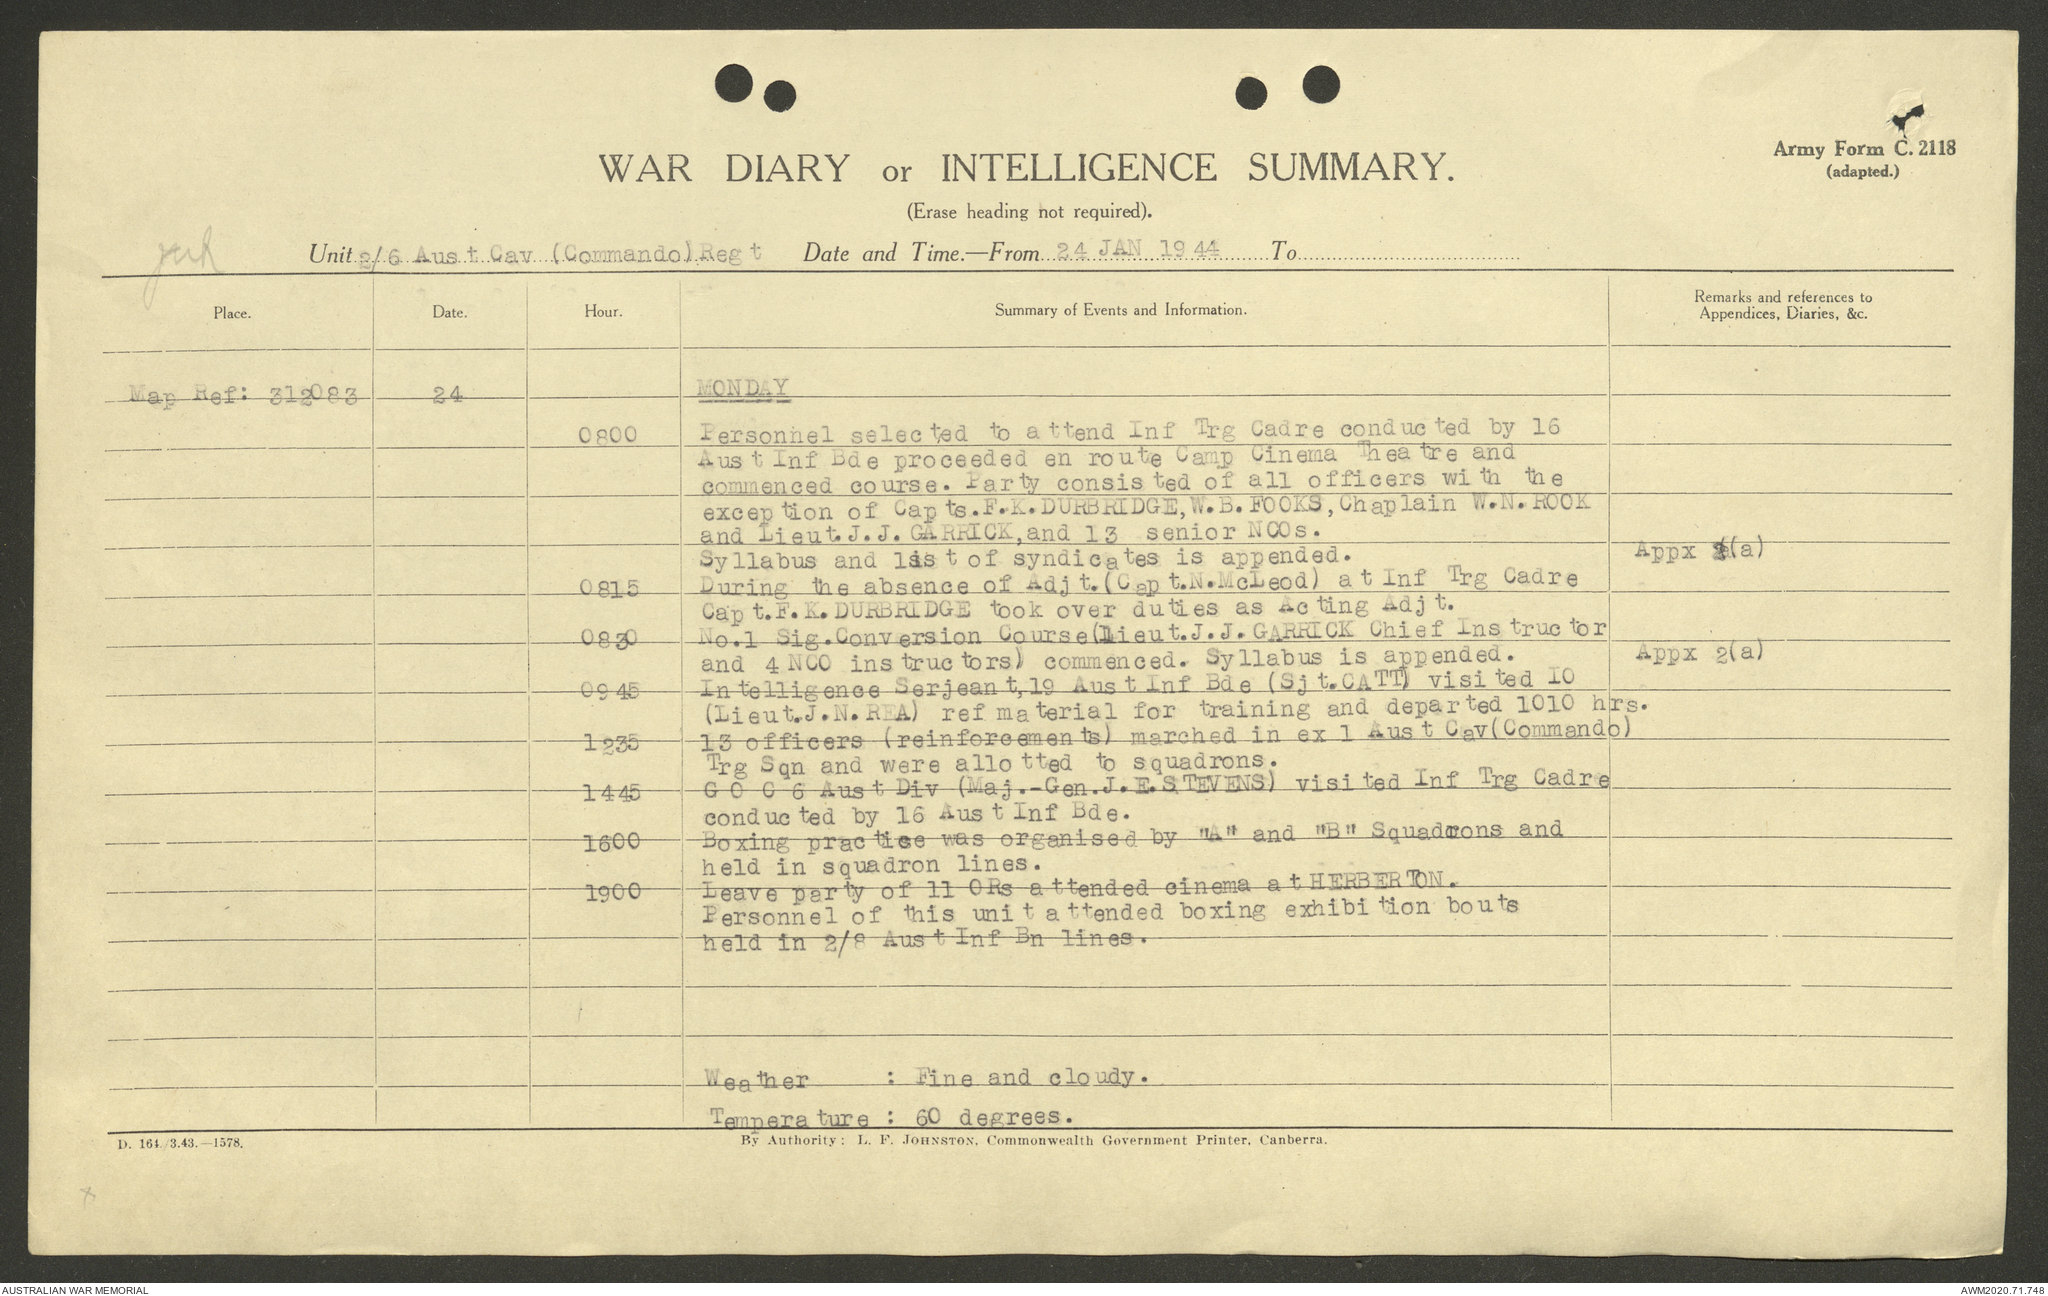 WAR DIARY or INTELLIGENCE SUMMARY.
Army Form C. 2118
(adapted.)
(Erase heading not required).
Unit 2/6 Aust Cav (Commando) Regt Date and Time.—From 24 JAN 1944 To
Place. Date. Hour. Summary of Events and Information. Remarks and references to Appendices, Diaries, &c.
Map Ref: 312083 24 MONDAY
0800 Personnel selected to attend Inf Trg Cadre conducted by 16
Aust Inf Bde proceeded en route Camp Cinema Theatre and
commenced course. Party consisted of all officers with the
exception of Capts.F.K.DURBRIDGE,W.B.FOOKS,Chaplain W.N.ROOK
and Lieut.J.J.GARRICK,and 13 senior NCOs.
Syllabus and list of syndicates is appended. Appx (a)
0815 During the absence of Adjt.(Capt.N.McLeod) at Inf Trg Cadre
Capt.F.K.DURBRIDGE took over duties as Acting Adjt.
0830 No.1 Sig.Conversion Course(Lieut.J.J.GARRICK Chief Instructor
and 4 NCO instructors) commenced. Syllabus is appended. Appx 2(a)
0945 Intelligence Serjeant,19 Aust Inf Bde (Sjt.CATT) visited IO
(Lieut.J.N.REA) ref material for training and departed 1010 hrs.
1235 13 officers (reinforcements) marched in ex 1 Aust Cav(Commando)
Trg Sqn and were allotted to squadrons.
1445 G O C 6 Aust Div (Maj.-Gen.J.E.STEVENS) visited Inf Trg Cadre
conducted by 16 Aust Inf Bde.
1600 Boxing practice was organised by "A" and "B" Squadrons and
held in squadron lines.
1900 Leave party of 11 ORs attended cinema at HERBERTON.
Personnel of this unit attended boxing exhibition bouts
held in 2/8 Aust Inf Bn lines.
Weather : Fine and cloudy.
Temperature : 60 degrees.
D. 164./3.43.—1578.
By Authority: L. F. JOHNSTON, Commonwealth Government Printer, Canberra.
AUSTRALIAN WAR MEMORIAL
AWM2020.71.748